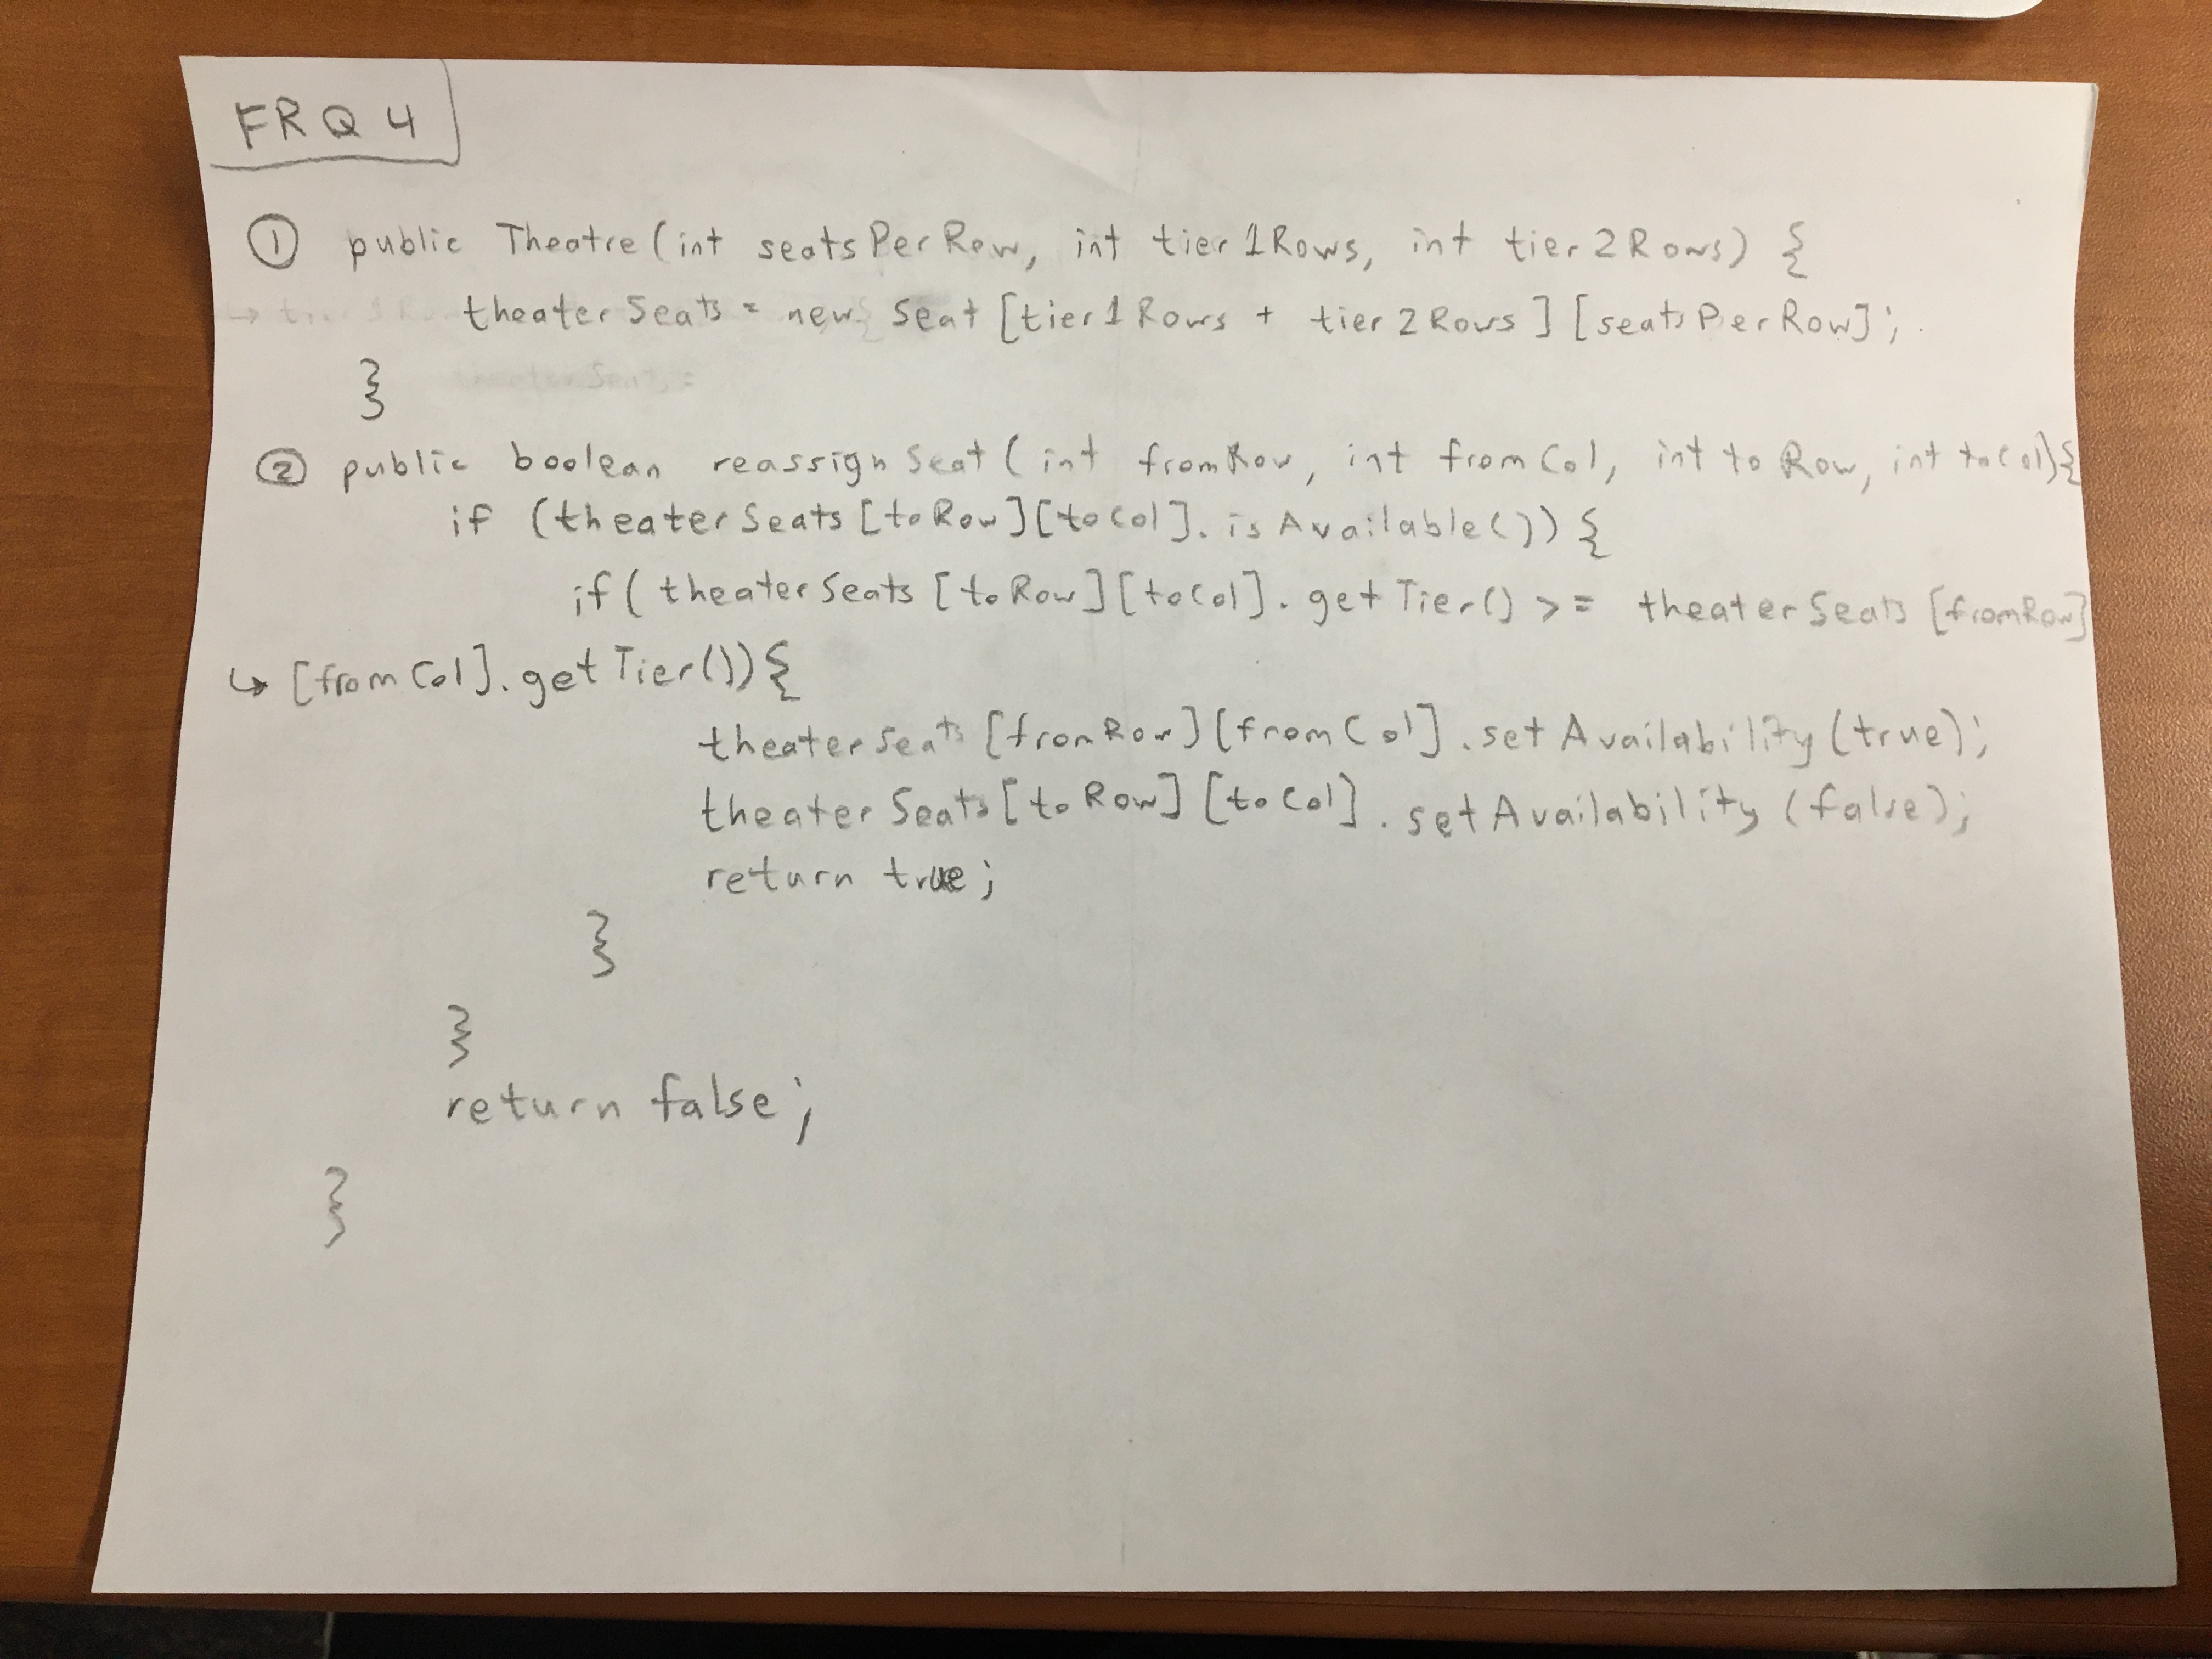 FRQ 4
① public Theatre(int seatsPerRow, int tier1Rows, int tier2Rows) {
theaterSeats = new Seat[tier1Rows + tier2Rows][seatsPerRow];
}
② public boolean reassignSeat(int fromRow, int fromCol, int toRow, int toCol){
if (theaterSeats[toRow][toCol].isAvailable()) {
if(theaterSeats[toRow][toCol].getTier() >= theaterSeats[fromRow]
↳ [fromCol].getTier()){
theaterSeats[fromRow][fromCol].setAvailability(true);
theaterSeats[toRow][toCol].setAvailability(false);
return true;
}
}
return false;
}